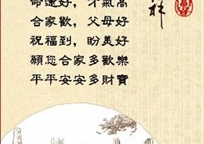 命運好，才氣高
合家歡，父母好
祝福到，盼美好
願您合家多歡樂
平平安安多財寶
祥